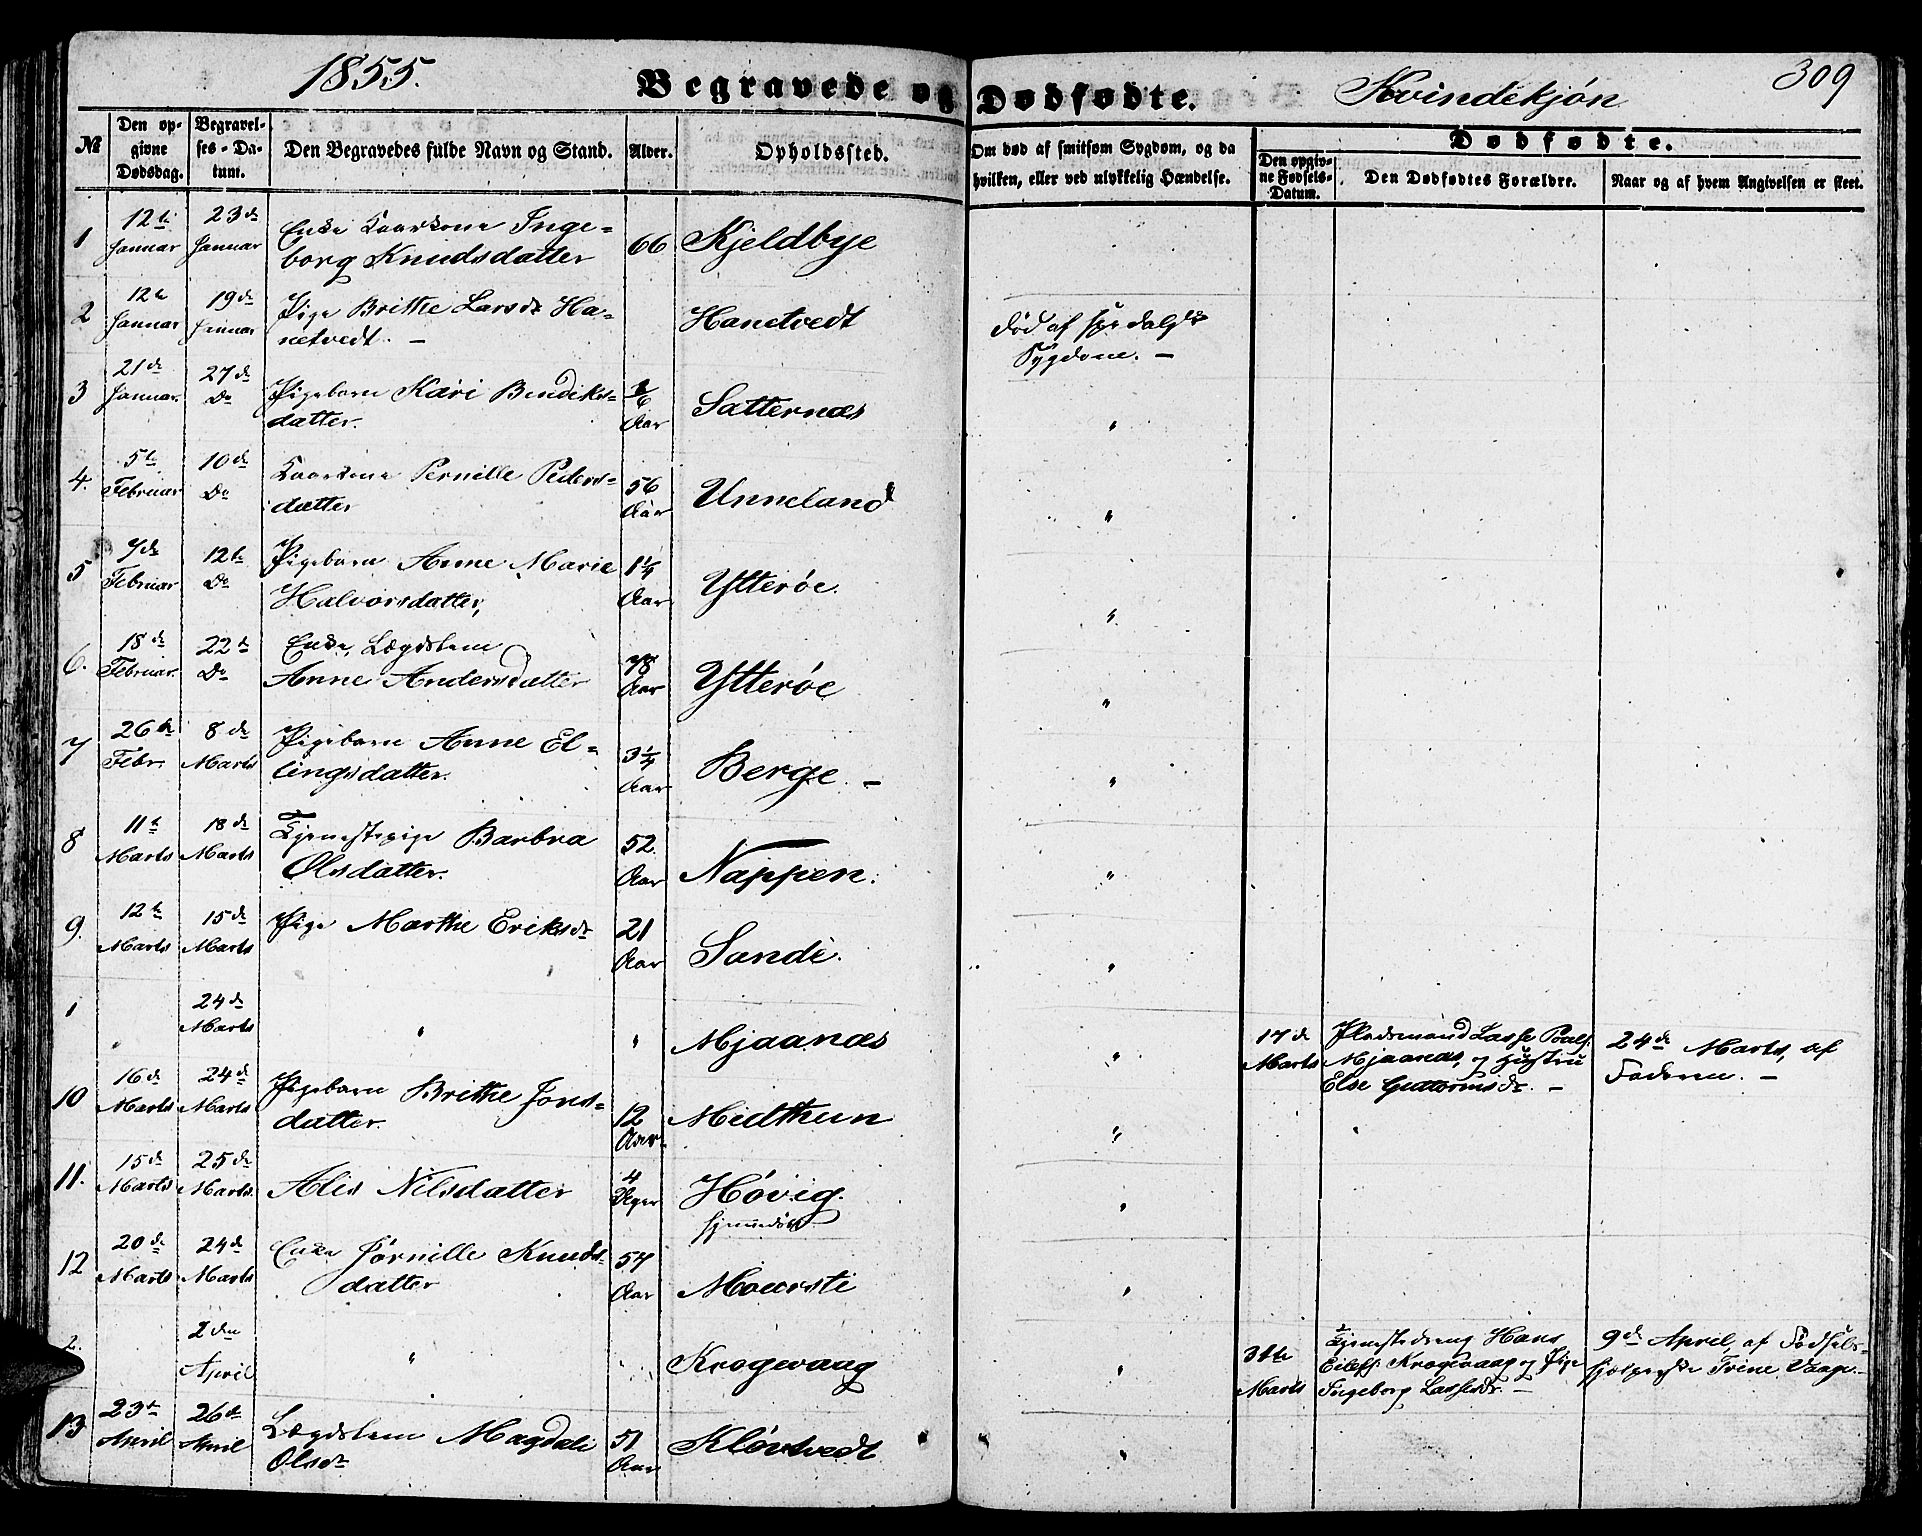 1855. Begravede og Dødfødte. Kvindekjøn 309
№ Den opgivne Dødsdag. Begravelses-Datum. Den Begravedes fulde Navn og Stand. Alder. Opholdssted. Om død af smitsom Sygdom, og da hvilken, eller ved ulykkelig Hændelse. Dødfødte. Den opgivne Fødsels-Datum. Den Dødfødtes Forældre. Naar og af hvem Angivelsen er skeet.
1 12te Januar 23de Januar Enke Kaarkone Inge=
borg Knudsdatter 66 Kjeldbye
2 12te Januar 19de Januar Pige Brithe Larsdr Ha=
netvedt. – Hanetvedt Død af spedalsk
Sygdom. –
3 21de Januar. 27de Do Pigebarn Kari Bendiks=
datter. 1/6 Aar Sætternæs "
4. 5te Februar 10de Do Kaarkone Pernille Peders=
datter 56 Aar Unneland "
5 7de Februar 12te Do Pigebarn Anne Marie
Halvorsdatter, 1¼ Aar Ytterøe. "
6. 18de Februar. 22de Do Enke, Lægdslem
Anne Andersdatter 78 Aar Ytterøe "
7 26de Febr. 8de Marts Pigebarn Anne El=
lingsdatter. 3¼ Aar Berge. – "
8 11te Marts 18de Marts Tjenestepige Barbra
Olsdatter. 52. Aar Nappen. "
9. 12te Marts 15de Marts Pige Marthe Eriksdr 21 Aar Sande. "
1 " 24de Marts " " Mjaanæs " 17de Marts Pladsmand Lasse Pouls.
Mjaanæs, og Hustru
Else Guttormsdr. – 24de Marts, af
Faderen. –
10 16de Marts 24de Marts Pigebarn Brithe Jons=
datter. 12 Aar. Midthun "
11. 15de Marts 25de Marts. Alis Nilsdatter 4 Uger Høvig.
hjemmedøbt. "
12 20de Marts 24de Marts Enke Jørnille Knuds=
datter 57 Aar Mourste "
2. 2den April " Krogevaag " 31te Marts Tjenestedreng Hans
Eilefs. Krogevaag og Pige
Ingeborg Lassesdr. – 9de April, af Fødsels=
hjelperske Trine Vaage. –
13 23de April 26de April Lægdslem Magdeli
Olsdr 51 Aar Kløvtvedt "